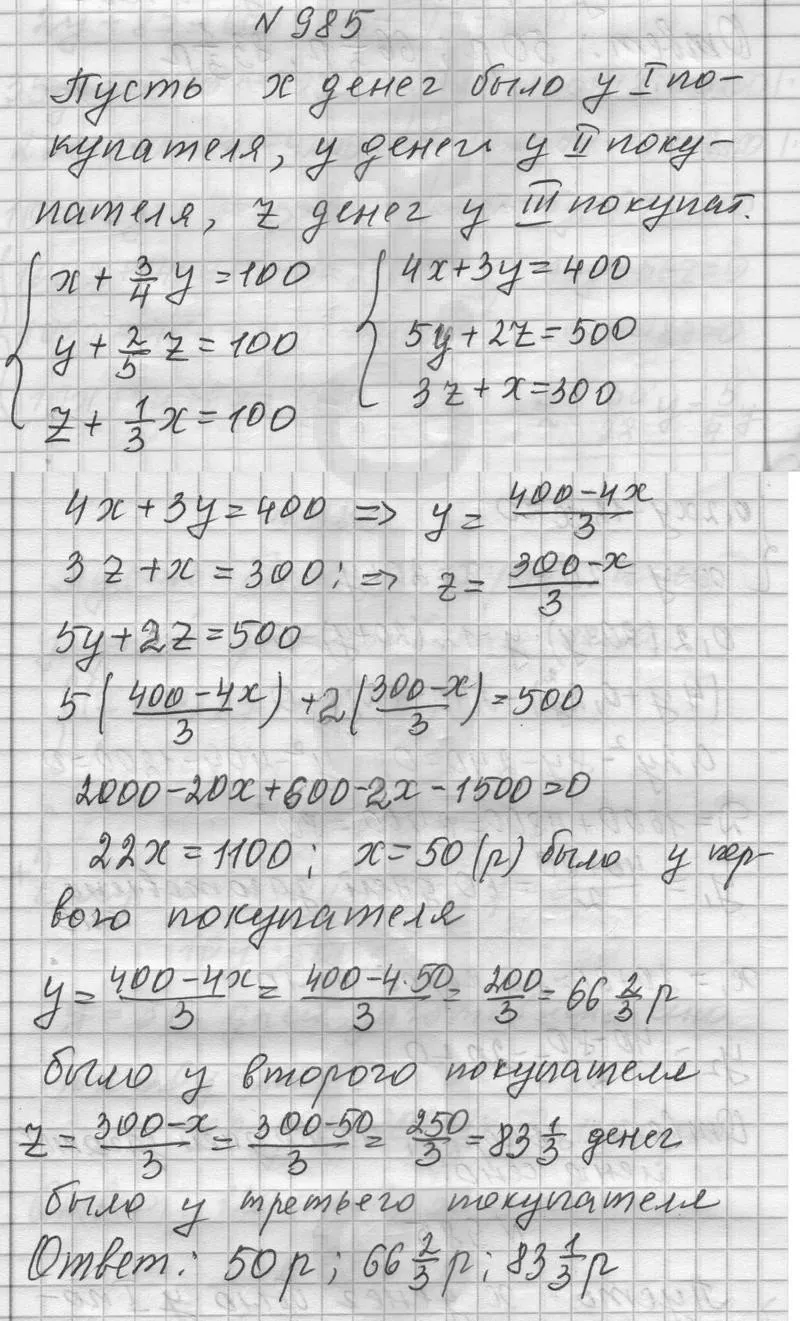 N 985
Пусть x денег было у I по-
купателя, y денег у II поку-
пателя, z денег у III покупат.
x + 3/4 y = 100
y + 2/5 z = 100
z + 1/3 x = 100
4x + 3y = 400
5y + 2z = 500
3z + x = 300
4x + 3y = 400 => y = (400 - 4x)/3
3z + x = 300; => z = (300 - x)/3
5y + 2z = 500
5((400 - 4x)/3) + 2((300 - x)/3) = 500
2000 - 20x + 600 - 2x - 1500 = 0
22x = 1100; x = 50 (р) было у пер-
вого покупателя
y = (400 - 4x)/3 = (400 - 4·50)/3 = 200/3 = 66 2/3 р
было у второго покупателя
z = (300 - x)/3 = (300 - 50)/3 = 250/3 = 83 1/3 денег
было у третьего покупателя
Ответ: 50 р; 66 2/3 р; 83 1/3 р